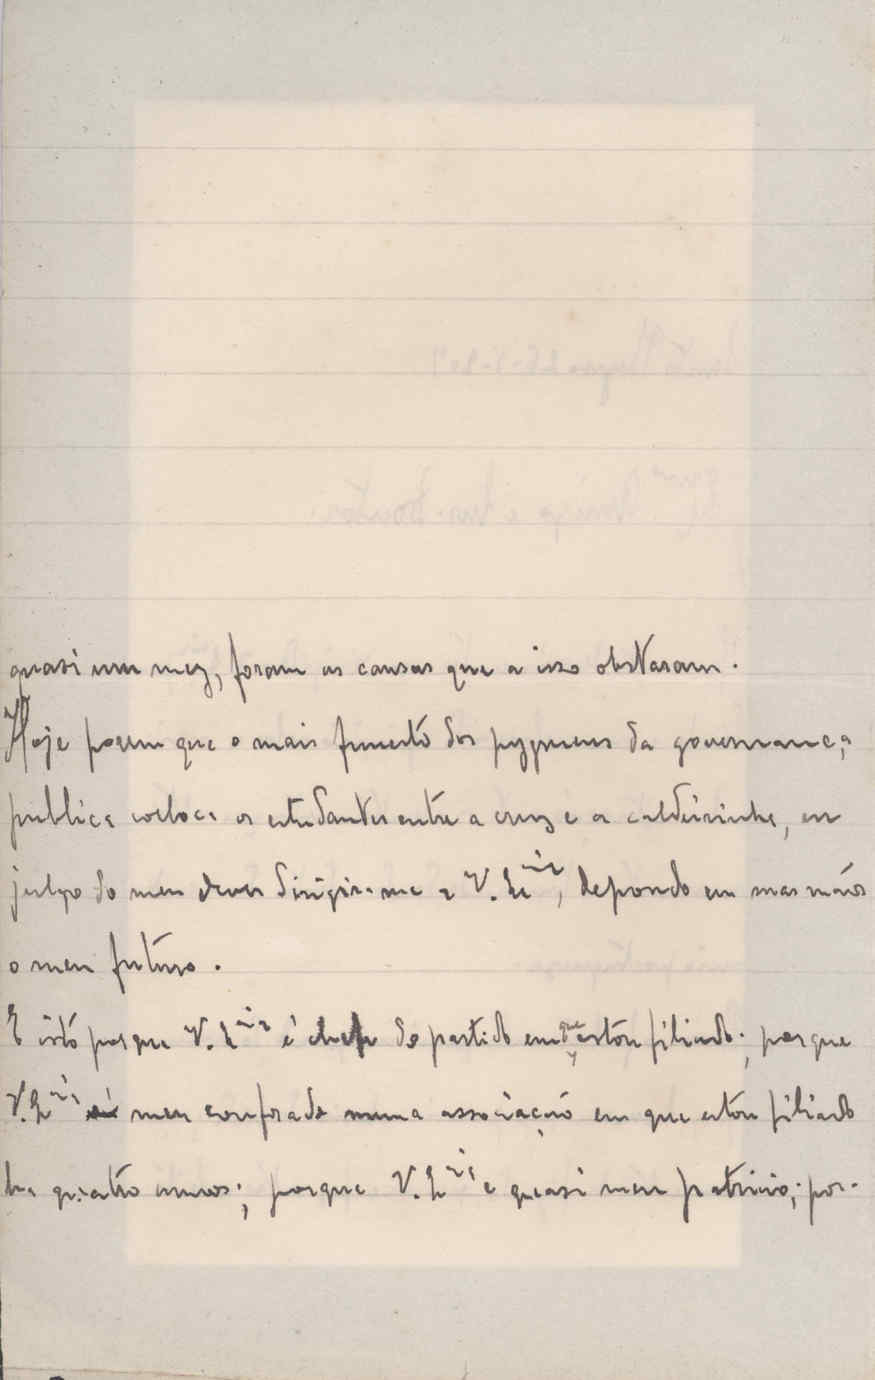 quasi um mez, foram as causas que a isso obstaram.
Hoje porem que o mais funesto dos pygmeus da governança
publica colloca os estudantes entre a cruz e a caldeirinha, eu
julgo do meu dever dirigir-me a V. Ex.cia, depondo em suas mãos
o meu futuro.
E isto porque V. Ex.cia é chefe do partido em que estou filiado; porque
V. Ex.cia é meu confrade numa associação em que estou filiado
ha quatro annos; porque V. Ex.cia e quasi meu patricio; por-